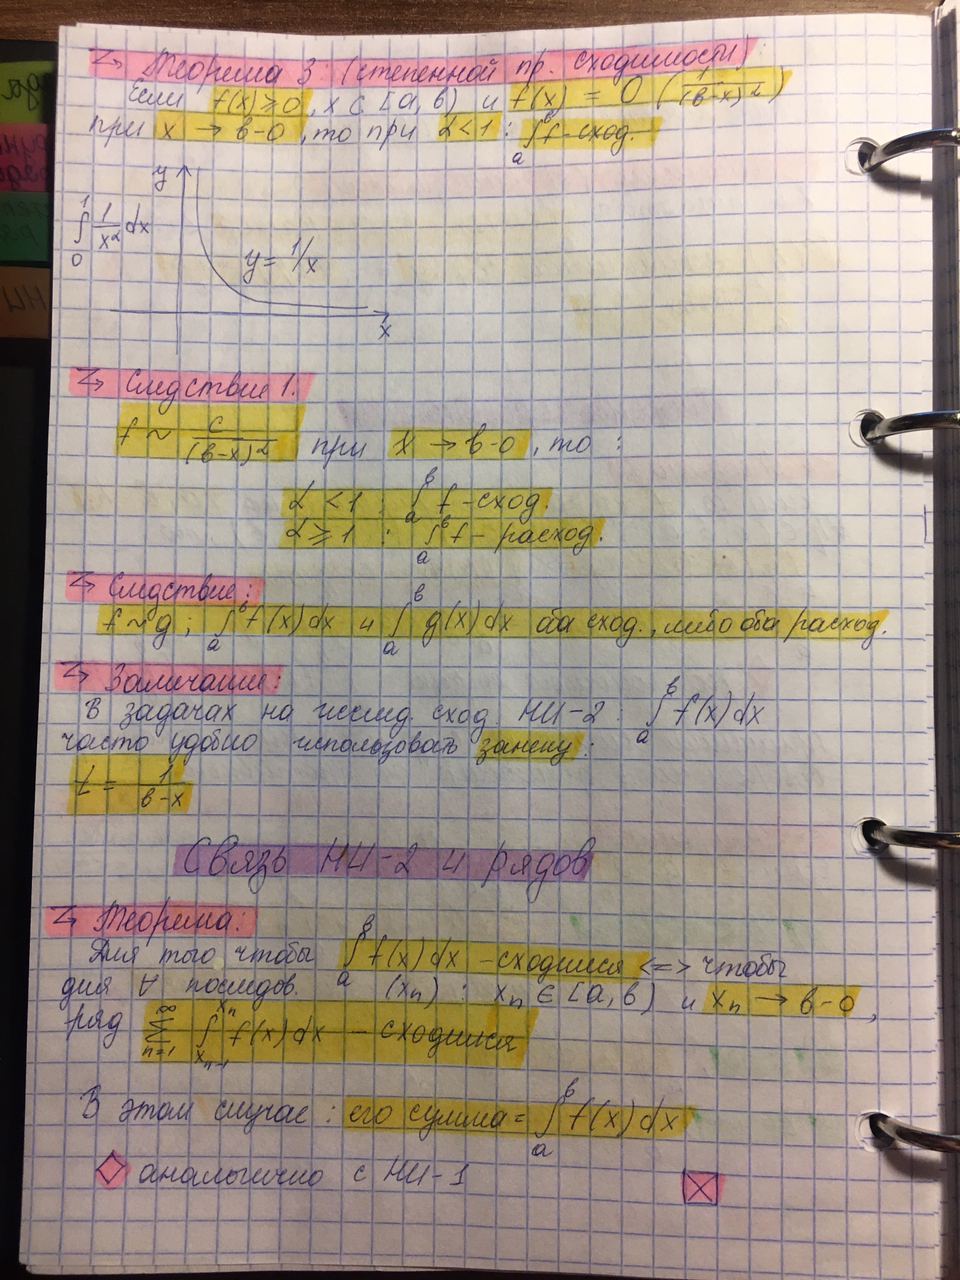 Теорема 3: (степенной пр. сходимости):
Если f(x) ≥ 0, x ∈ [a, b) и f(x) = O (1/(b-x)^α)
при x → b-0, то при α<1 : ∫_a^b f - сход.
y
∫_0^1 1/x^α dx
y = 1/x
x
Следствие 1:
f ~ c/(b-x)^α при x → b-0, то :
α < 1 : ∫_a^b f - сход.
α ≥ 1 : ∫_a^b f - расход.
Следствие:
f ~ g ; ∫_a^b f(x) dx и ∫_a^b g(x) dx оба сход., либо оба расход.
Замечание:
В задачах на исслед. сход. НИ-2 : ∫_a^b f(x) dx
часто удобно использовать замену:
t = 1/(b-x)
Связь НИ-2 и рядов
Теорема:
Для того чтобы ∫_a^b f(x) dx - сходился <=> чтобы
для ∀ последов. (x_n) : x_n ∈ [a, b) и x_n → b-0,
ряд ∑_{n=1}^∞ ∫_{x_{n-1}}^{x_n} f(x) dx - сходился
В этом случае : его сумма = ∫_a^b f(x) dx
аналогично с НИ-1